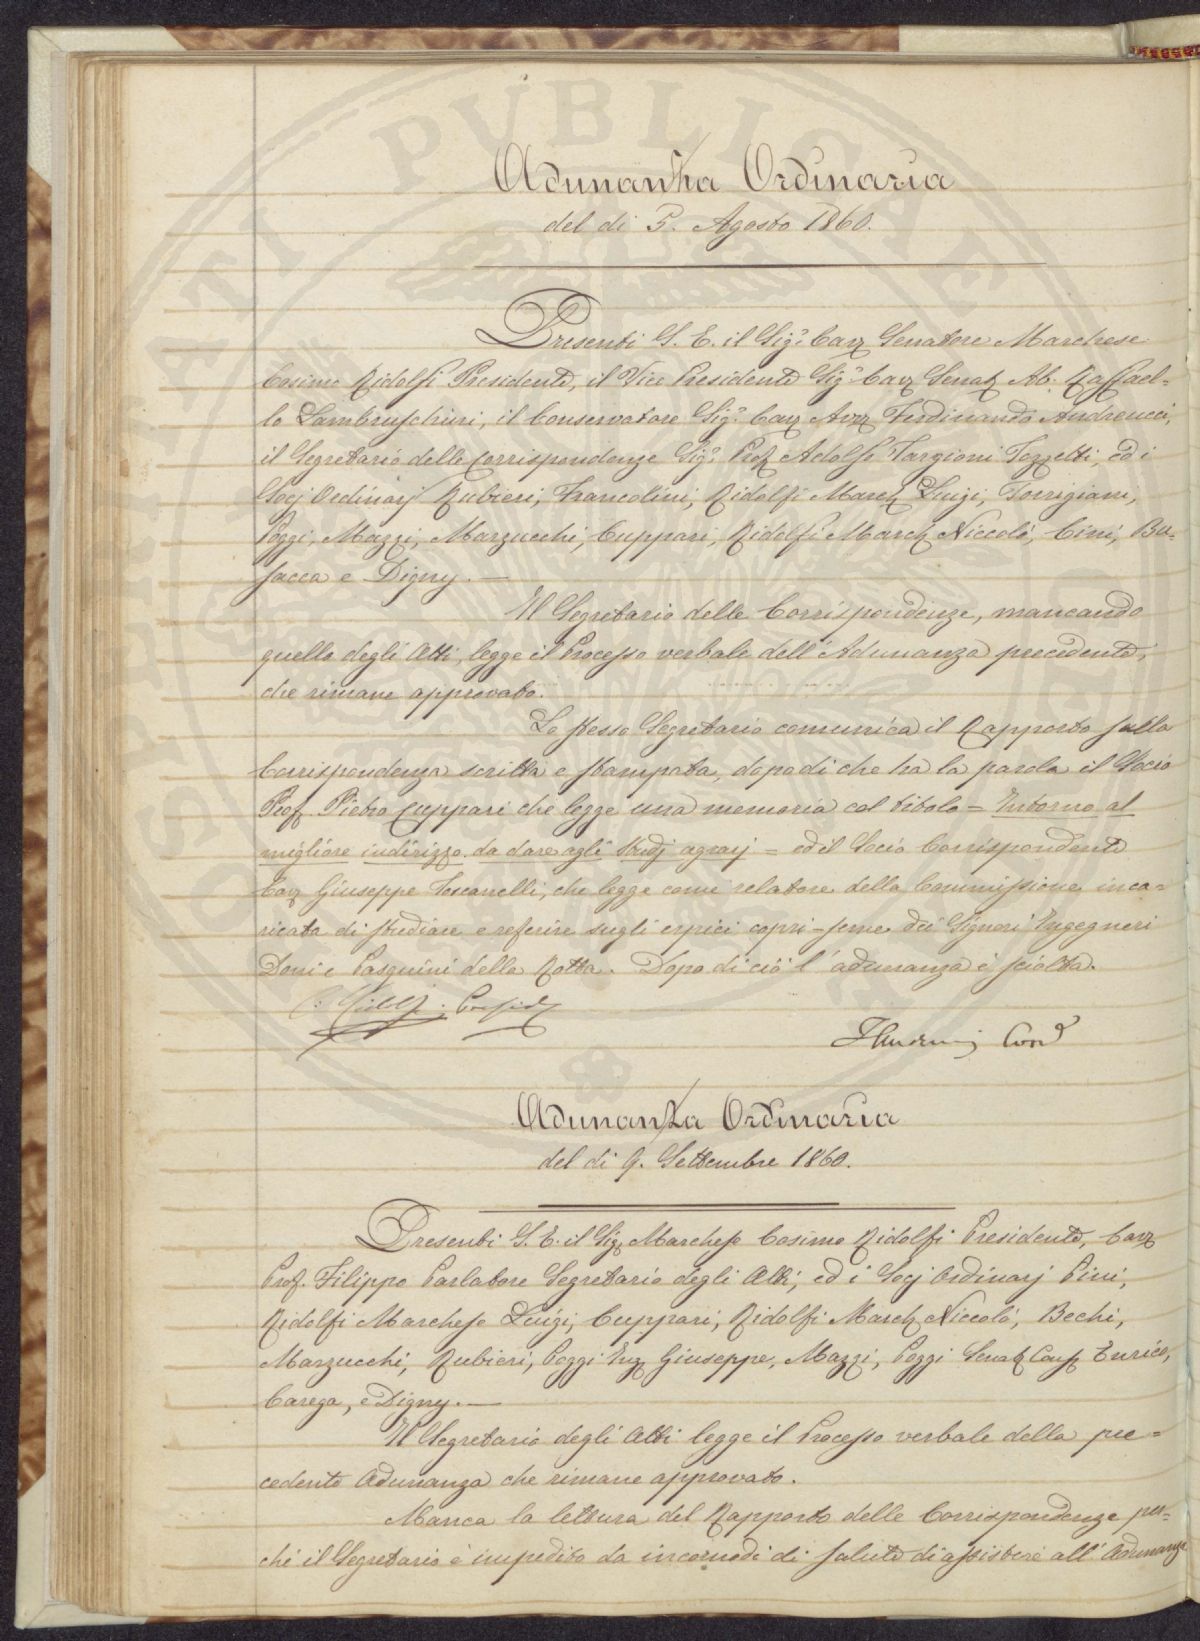 Adunanza Ordinaria
del dì 5. Agosto 1860.
Presenti S. E. il Sig.r Cav Senatore Marchese
Cosimo Ridolfi Presidente, il Vice Presidente Sig.r Cav Senat Ab. Raffael=
lo Lambruschini, il Conservatore Sig.r Cav Avv Ferdinando Andreucci,
il Segretario delle Corrispondenze Sig.r Prof Adolfo Targioni Tozzetti, ed i
Socj Ordinarj Rubieri, Francolini, Ridolfi March Luigi, Torrigiani,
Poggi, Mazzi, Marzucchi, Cuppari, Ridolfi March Niccolò, Cini, Bu=
sacca e Digny. —
Il Segretario delle Corrispondenze, mancando
quello degli Atti, legge il Processo verbale dell'Adunanza precedente,
che rimane approvato.
Lo stesso Segretario comunica il Rapporto sulla
Corrispondenza scritta e stampata, dopo di che ha la parola il Socio
Prof Pietro Cuppari che legge una memoria col titolo = Intorno al
migliore indirizzo da dare agli Studj agrarj = ed il Socio Corrispondente
Cav Giuseppe Toscanelli, che legge come relatore della Commissione inca=
ricata di studiare e referire sugli erpici copri-seme dei Signori Ingegneri
Doni e Pasquini della Rotta. Dopo di ciò l'adunanza è sciolta.
C. Ridolfi Presid
FAndreucci Cons
Adunanza Ordinaria
del dì 9. Settembre 1860.
Presenti S. E. il Sig Marchese Cosimo Ridolfi Presidente, Cav
Prof. Filippo Parlatore Segretario degli Atti, ed i Socj Ordinarj Pini,
Ridolfi Marchese Luigi, Cuppari, Ridolfi March Niccolò, Bechi,
Marzucchi, Rubieri, Poggi Ing Giuseppe, Mazzi, Poggi Senat Cons Enrico,
Carega, e Digny. —
Il Segretario degli Atti legge il Processo verbale della pre=
cedente Adunanza che rimane approvato.
Manca la lettura del Rapporto delle Corrispondenze per=
chè il Segretario è impedito da incomodi di salute di assistere all'Adunanza